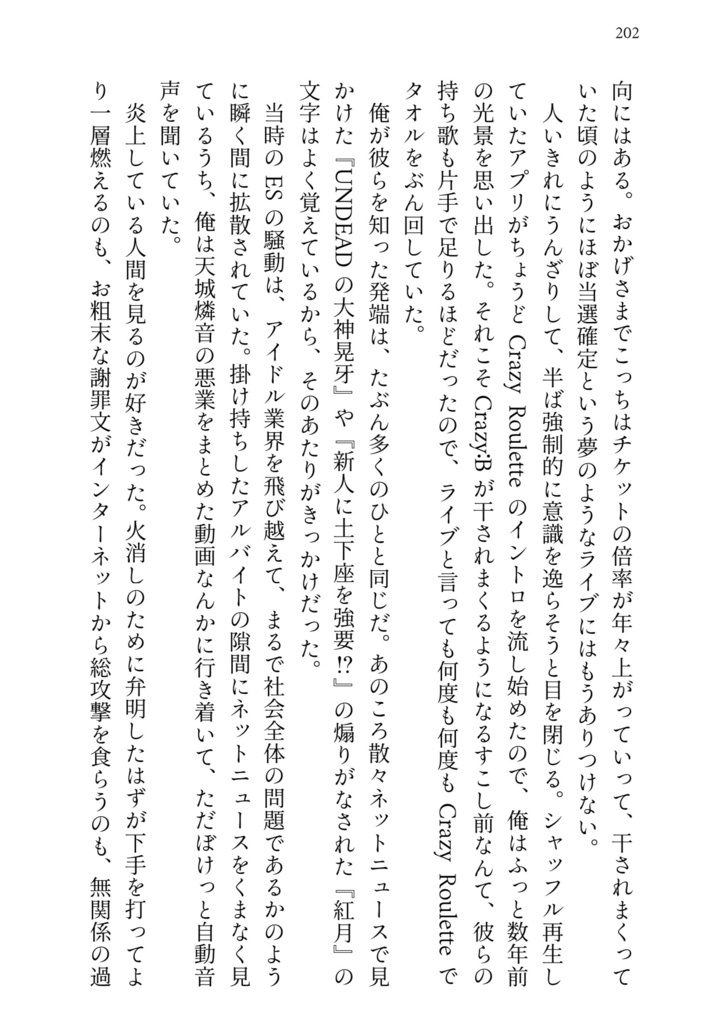 202
向にはある。おかげさまでこっちはチケットの倍率が年々上がっていって、干されまくって
いた頃のようにほぼ当選確定という夢のようなライブにはもうありつけない。
　人いきれにうんざりして、半ば強制的に意識を逸らそうと目を閉じる。シャッフル再生し
ていたアプリがちょうど Crazy Roulette のイントロを流し始めたので、俺はふっと数年前
の光景を思い出した。それこそ Crazy:B が干されまくるようになるすこし前なんて、彼らの
持ち歌も片手で足りるほどだったので、ライブと言っても何度も何度も Crazy Roulette で
タオルをぶん回していた。
　俺が彼らを知った発端は、たぶん多くのひとと同じだ。あのころ散々ネットニュースで見
かけた『UNDEAD の大神晃牙』や『新人に土下座を強要!?』の煽りがなされた『紅月』の
文字はよく覚えているから、そのあたりがきっかけだった。
　当時の ES の騒動は、アイドル業界を飛び越えて、まるで社会全体の問題であるかのよう
に瞬く間に拡散されていた。掛け持ちしたアルバイトの隙間にネットニュースをくまなく見
ているうち、俺は天城燐音の悪業をまとめた動画なんかに行き着いて、ただぼけっと自動音
声を聞いていた。
　炎上している人間を見るのが好きだった。火消しのために弁明したはずが下手を打ってよ
り一層燃えるのも、お粗末な謝罪文がインターネットから総攻撃を食らうのも、無関係の過